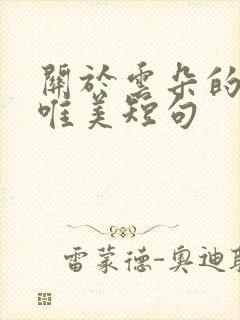 關於雲朵的
唯美短句
雷蒙德-奧迪耶